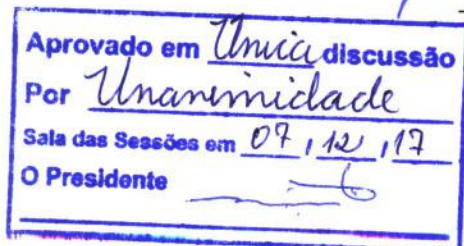 Aprovado em Unica discussão
Por Unanimidade
Sala das Sessões em 07, 12, 17
O Presidente